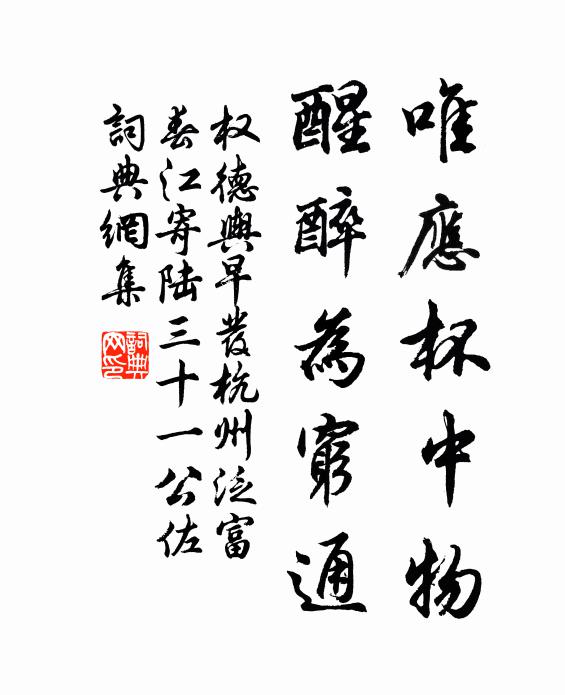 唯應杯中物
醒醉為窮通
权德輿早發杭州泛富
春江寄陆三十一公佐
詞典網集
詞典
网印